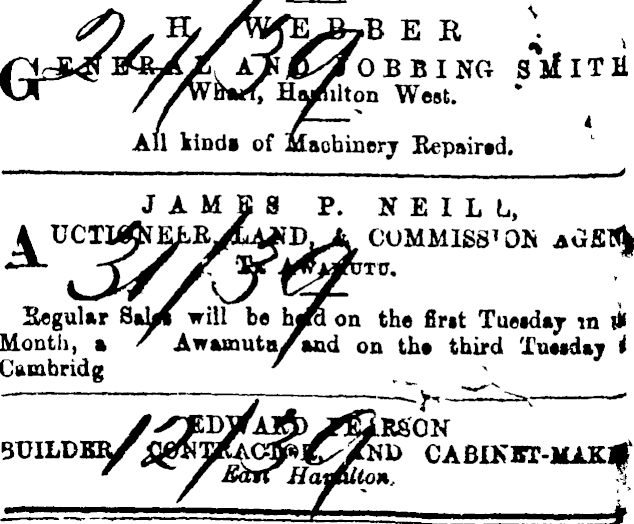 H. WEBBER
GENERAL AND JOBBING SMITH
Wharf, Hamilton West.
All kinds of Machinery Repaired.
JAMES P. NEILL,
AUCTIONEER, LAND, & COMMISSION AGEN
TE AWAMUTU.
Regular Sales will be held on the first Tuesday in
Month, a Awamutu, and on the third Tuesday
Cambridg
EDWARD PEARSON
BUILDER, CONTRACTOR, AND CABINET-MAK
East Hamilton.